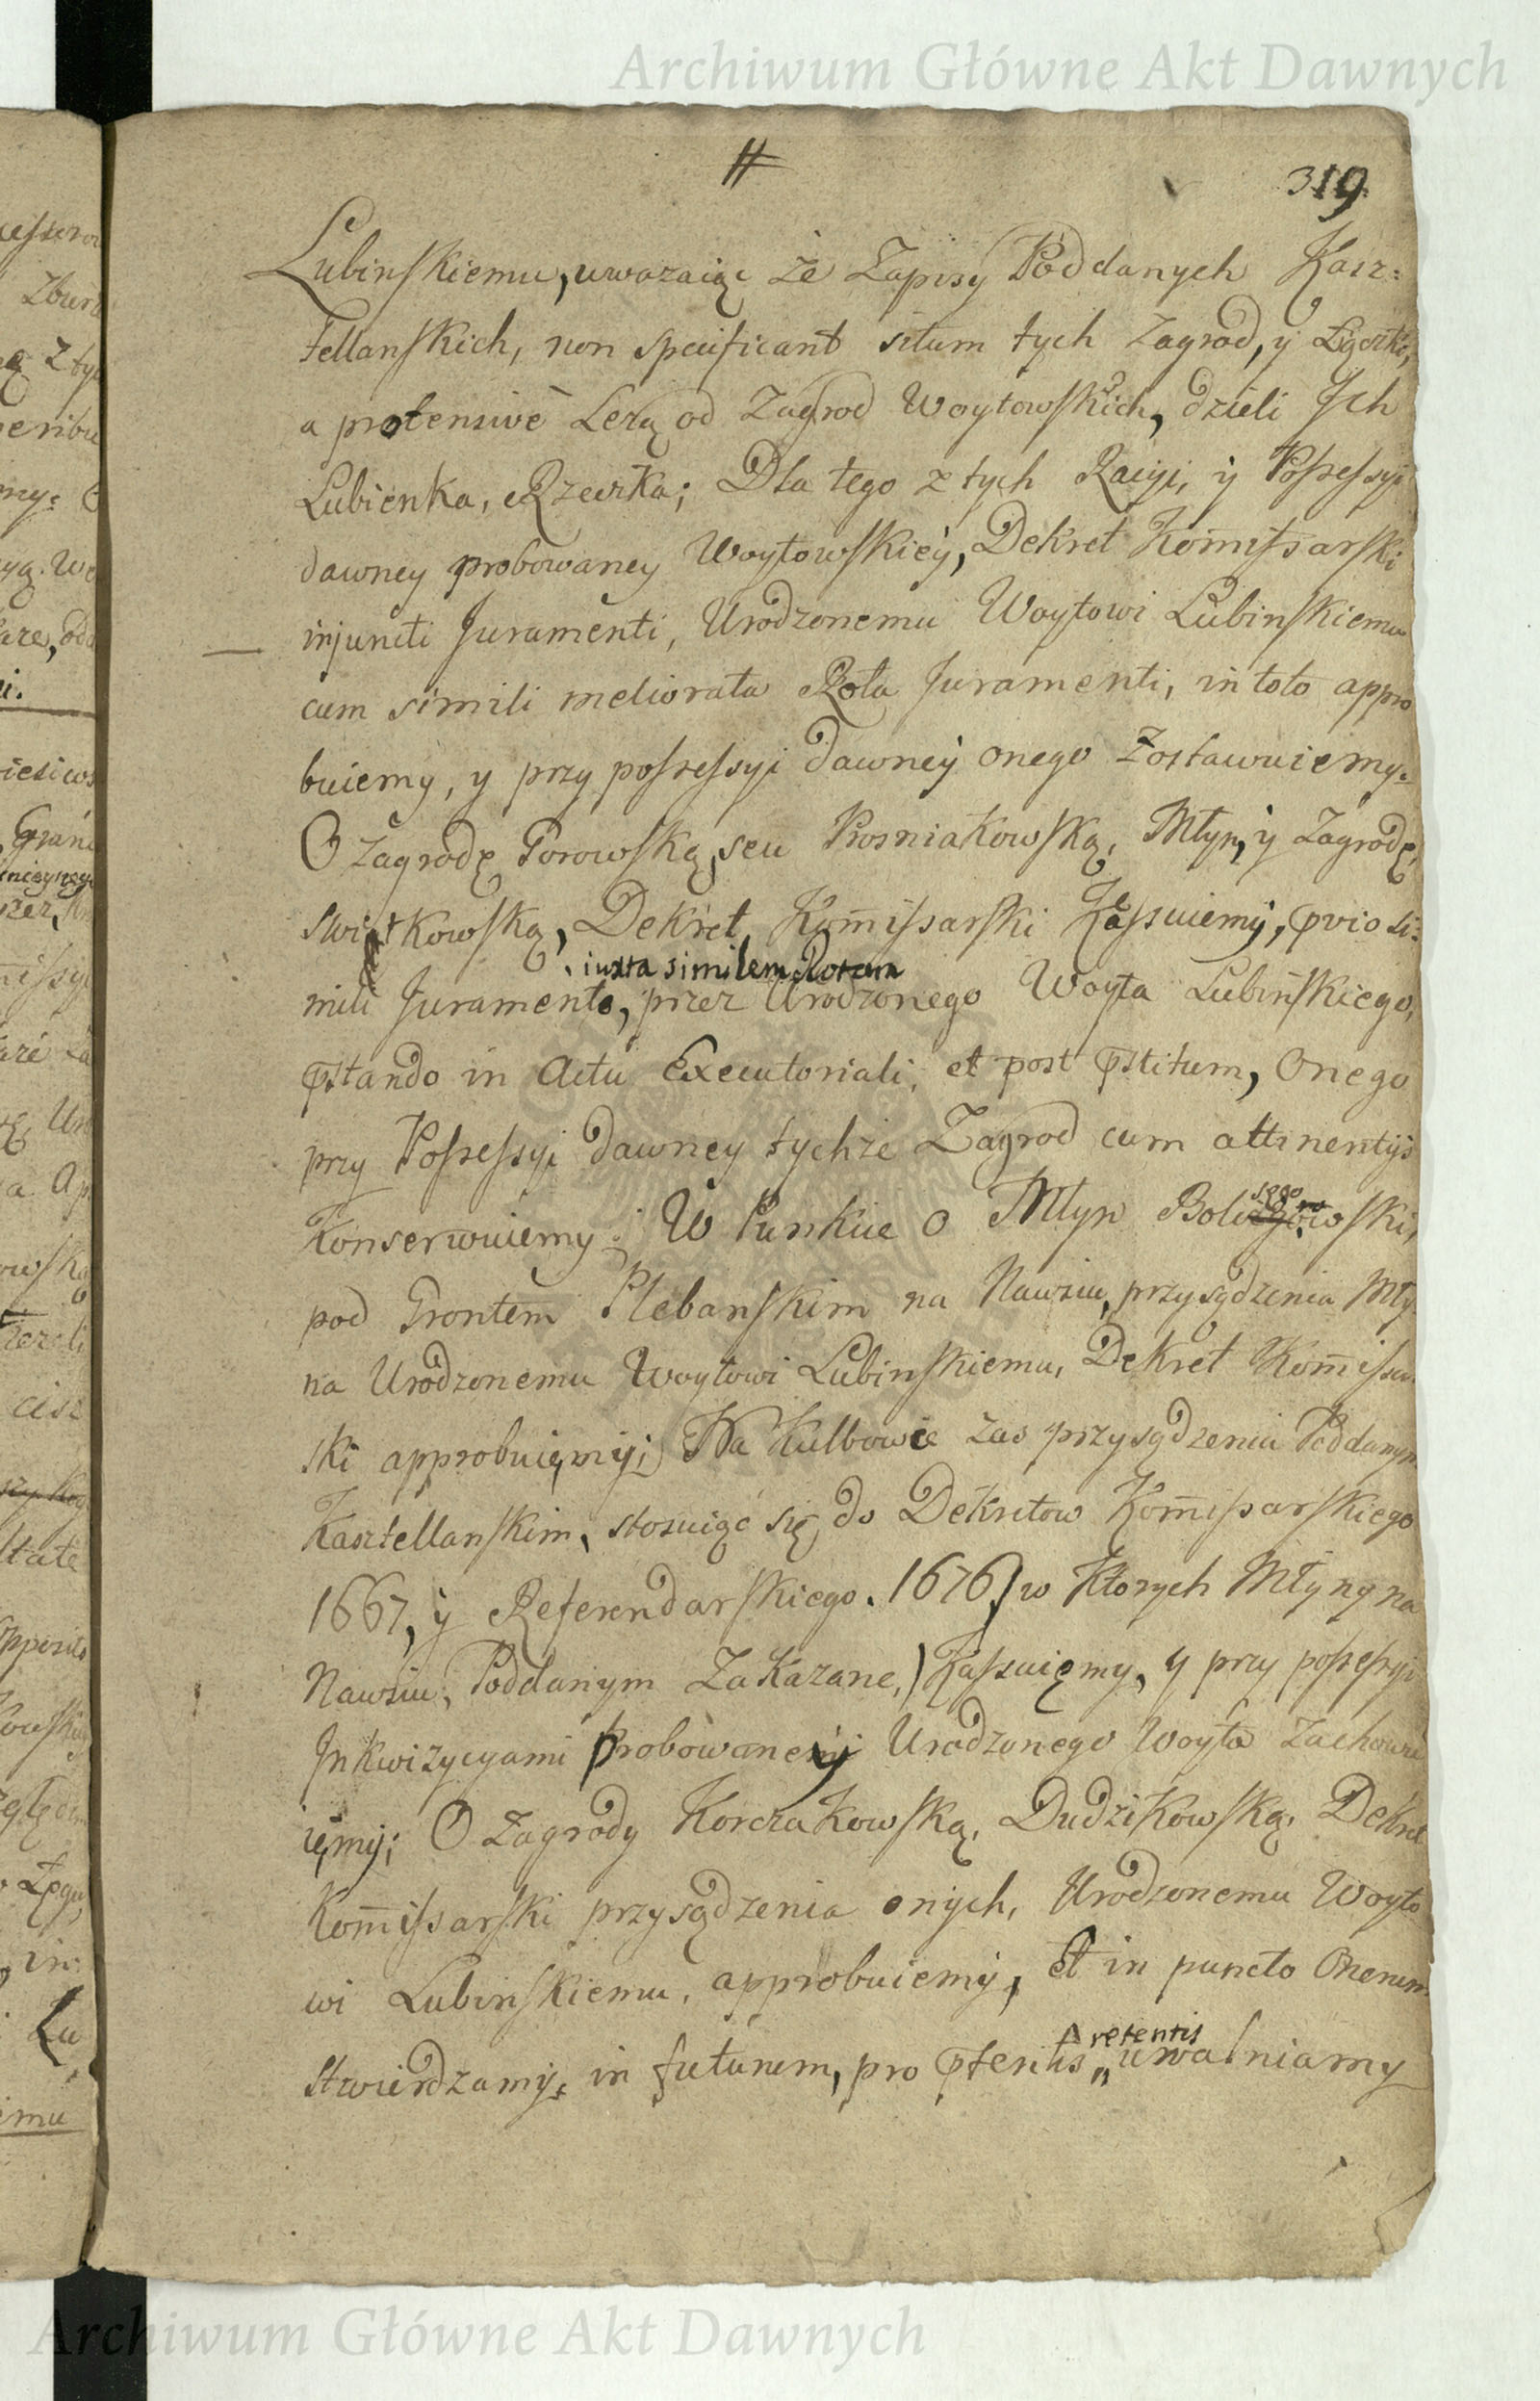 Archiwum Główne Akt Dawnych
#
319
Lubinskiemu, uwazaiąc że Zapisy Poddanych Kasz=
tellanskich, non specificant situm tych Zagrod, y
a protensive Leżą od Zagrod Woytowskich, dzieli Ich
Lubienka, Rzeczka; Dla tego z tych Racyi, y Possessyi
dawney probowaney Woytowskiey, Dekret Kom̄issarski
injuncti Juramenti, Urodzonemu Woytowi Lubinskiemu
cum simili meliorata Rota Juramenti, in toto appro
buiemy, y przy possessyi dawney onego Zostawuiemy.
O Zagrodę Porowską, seu Rosniakowską, Młyn, y Zagrodę
Swiątkowską, Dekret Kom̄issarski Kassuiemy, pvio si=
iuxta similem Rotam
mili Juramento, przez Urodzonego Woyta Lubinskiego,
pstando in Actu Executoriali, et post pstitum, Onego
przy Possessyi dawney tychże Zagrod cum attinentijs
Konserwuiemy; W Punkcie o Młyn
pod Grontem Plebanskim na Nawsiu, przysądzenia Mły=
na Urodzonemu Woytowi Lubinskiemu, Dekret Kom̄issar
ski approbuięmy; Na Kulbowce zas przysądzenia Poddanym
Kasztellanskim, stosuiąc się do Dekretow Kom̄issarskiego
1667, y Referendarskiego. 1676) w Ktorych Młyny na
Nawsiu, Poddanym Zakazane,) Kassuięmy, y przy possessyi
Inkwizycyami probowaney Urodzonego Woyta Zachowu
ięmy; O Zagrody Korczakowską, Dudzikowską, Dekret
Kom̄issarski przysądzenia onych, Urodzonemu Woyto
wi Lubinskiemu, approbuiemy, Et in puncto Onerum
retentis
stwierdzamy, in futurum, pro pteritis uwalniamy
Archiwum Główne Akt Dawnych